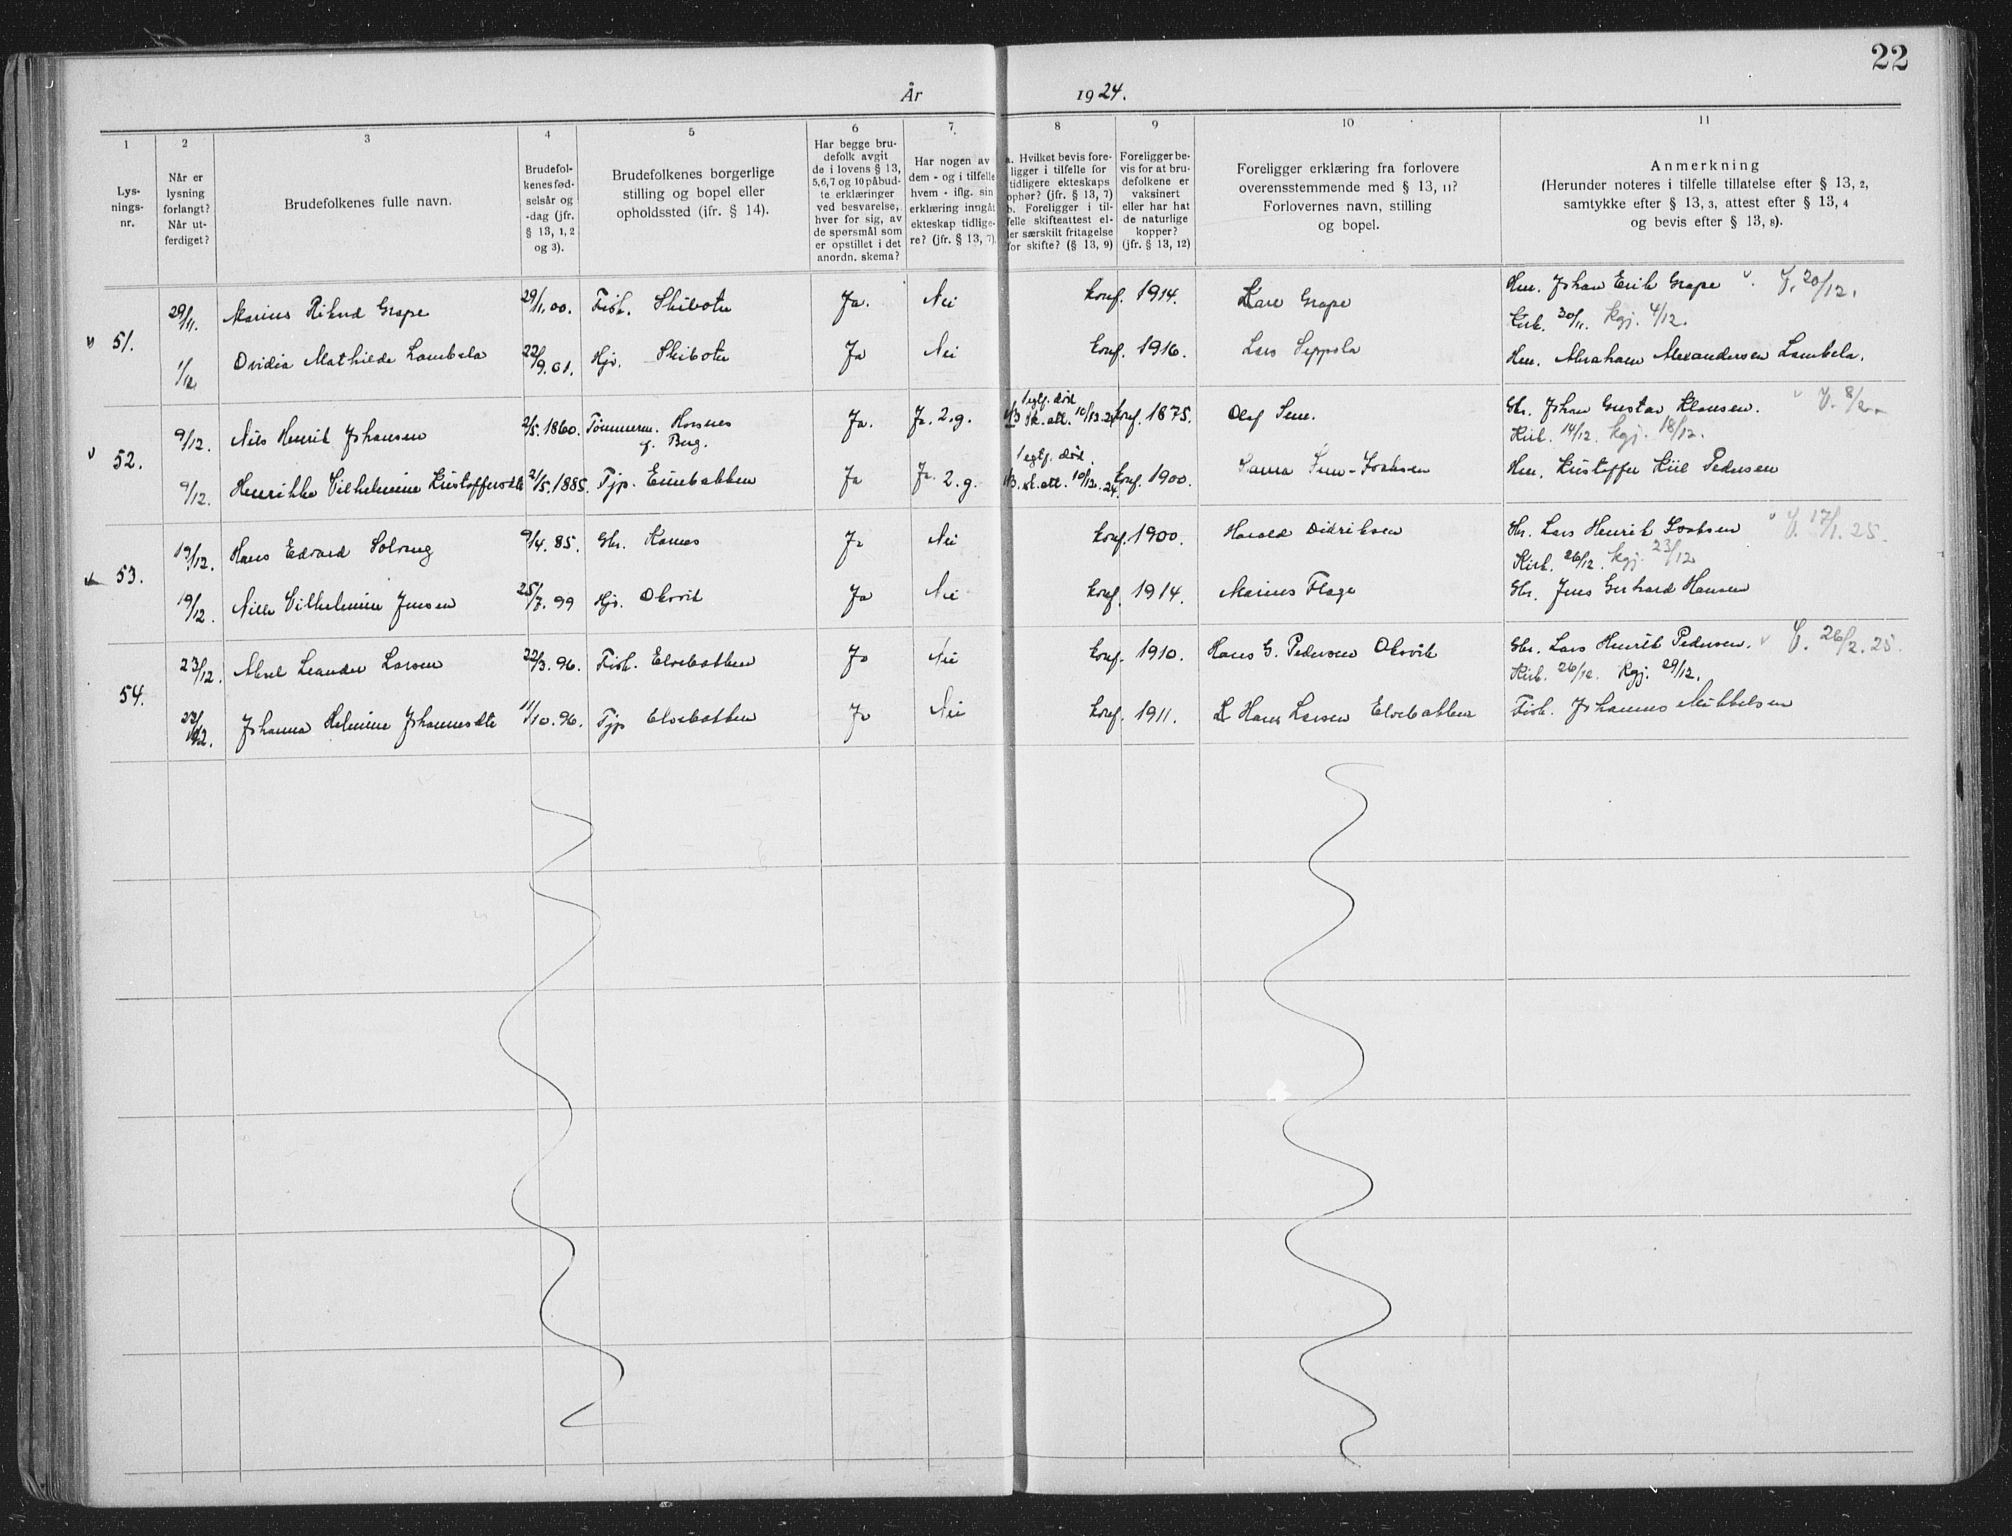 22
År 1924.
1 2 3 4 5 6 7 8 9 10 11
Lys-
nings-
nr.
Når er
lysning
forlangt?
Når ut-
ferdiget?
Brudefolkenes fulle navn.
Brudefol-
kenes fød-
selsår og
-dag (jfr.
§ 13, 1, 2
og 3).
Brudefolkenes borgerlige
stilling og bopel eller
opholdssted (ifr. § 14).
Har begge bru-
defolk avgit
de i lovens § 13,
5,6,7 og 10 påbud-
te erklæringer
ved besvarelse,
hver for sig, av
de spørsmål som
er opstillet i det
anordn. skema?
Har nogen av
dem - og i tilfelle
hvem - iflg. sin
erklæring inngåt
ekteskap tidlige-
re? (jfr. § 13, 7)
a. Hvilket bevis fore-
ligger i tilfelle for
tidligere ekteskaps
ophør? (jfr. § 13, 7)
b. Foreligger i til-
felle skifteattest el-
ler særskilt fritagelse
for skifte? (§ 13, 9)
Foreligger be-
vis for at bru-
defolkene er
vaksinert
eller har hat
de naturlige
kopper?
(jfr. § 13, 12)
Foreligger erklæring fra forlovere
overensstemmende med § 13, 11?
Forlovernes navn, stilling
og bopel.
Anmerkning
(Herunder noteres i tilfelle tillatelse efter § 13, 2,
samtykke efter § 13, 3, attest efter § 13, 4
og bevis efter § 13, 8).
51. 29/11. Marius Rikard Grape 29/11.00. Fisk. Skibotn Ja. Nei konf. 1914. Kare Grape Hm. Johan Erik Grape V. 20/12.
Kirk. 30/11. kgj. 4/12.
1/12 Ovidia Mathilde Lambela 22/9.01. Hjv. Skibotn Ja Nei konf. 1916. Lars Seppola Hm. Abraham Alexandersen Lambela.
52. 9/12. Nils Henrik Johansen 2/5.1860. Tømmerm. Horsnes Ja. Ja. 2.g. 1 egtf. død konf. 1875. Olaf Gbr. Johan Gustav Klausen. V. 8/2
f. Berg. sk. att. 10/12.24 Kirk. 14/12. kgj. 18/12.
9/12. Henrikke Vilhelmine Kristoffersdtr 21/5.1885. Tjp. Ja Ja. 2.g. 1 egtf. død. sk. att. 10/12.24 konf. 1900. Hm. Kristoffer Kiil Pedersen
53. 19/12. Hans Edvard Solvang 9/4.85. Gbr. Ja Nei konf. 1900. Harald Didriksen Gbr. Lars Henrik Isaksen V. 17/1.25.
Kirk. 26/12. kgj. 23/12
19/12. Nille Vilhelmine Jensen 25/7.99 Hjv. Oksvik Ja Nei konf. 1914. Marius Flage Gbr. Jens Gerhard Hansen
54. 23/12. Aksel Leander Larsen 22/3.96. Fisk. Elvebakken Ja Nei konf. 1910. Hans G. Pedersen Oksvik Gbr. Lars Henrik Pedersen. V. 26/2.25.
Kirk. 26/12. Kgj. 29/12.
23/12. Johanna Helmine Johannesdtr 11/10.96. Tjp Elvebakken Ja Nei konf. 1911. Hans Larsen Elvebakken Fisk. Johannes Mikkelsen